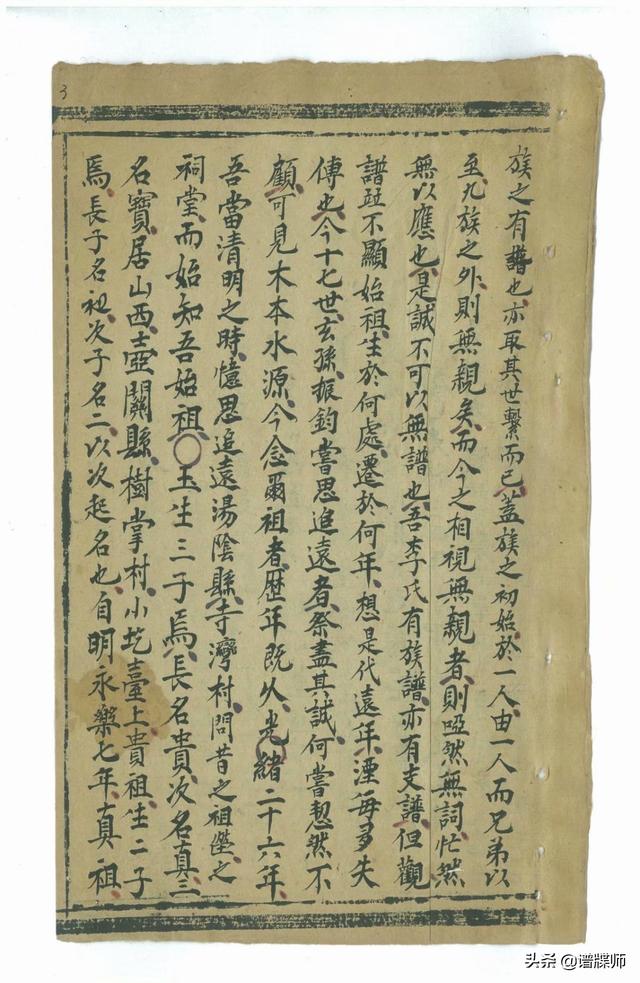 族之有譜也亦取其世繫而已蓋族之初始於一人由一人而兄弟以
至九族之外則無親矣而今之相視無親者則啞然無詞忙然
無以應也是誠不可以無譜也吾李氏有族譜亦有支譜但觀
譜並不顯始祖生於何處遷於何年想是代遠年湮每多失
傳也今十七世玄孫振鈞嘗思追遠者祭盡其誠何嘗恝然不
顧可見木本水源今念爾祖者歷年既久光緒二十六年
吾當清明之時憶思追遠湯陰縣寺灣村問昔之祖塋之
祠堂而始知吾始祖〇玉生三子焉長名貴次名真三
名寶居山西壺關縣樹掌村小圪臺上貴祖生二子
焉長子名初次子名二以次起名也自明永樂七年真祖
3
头条@谱牒师